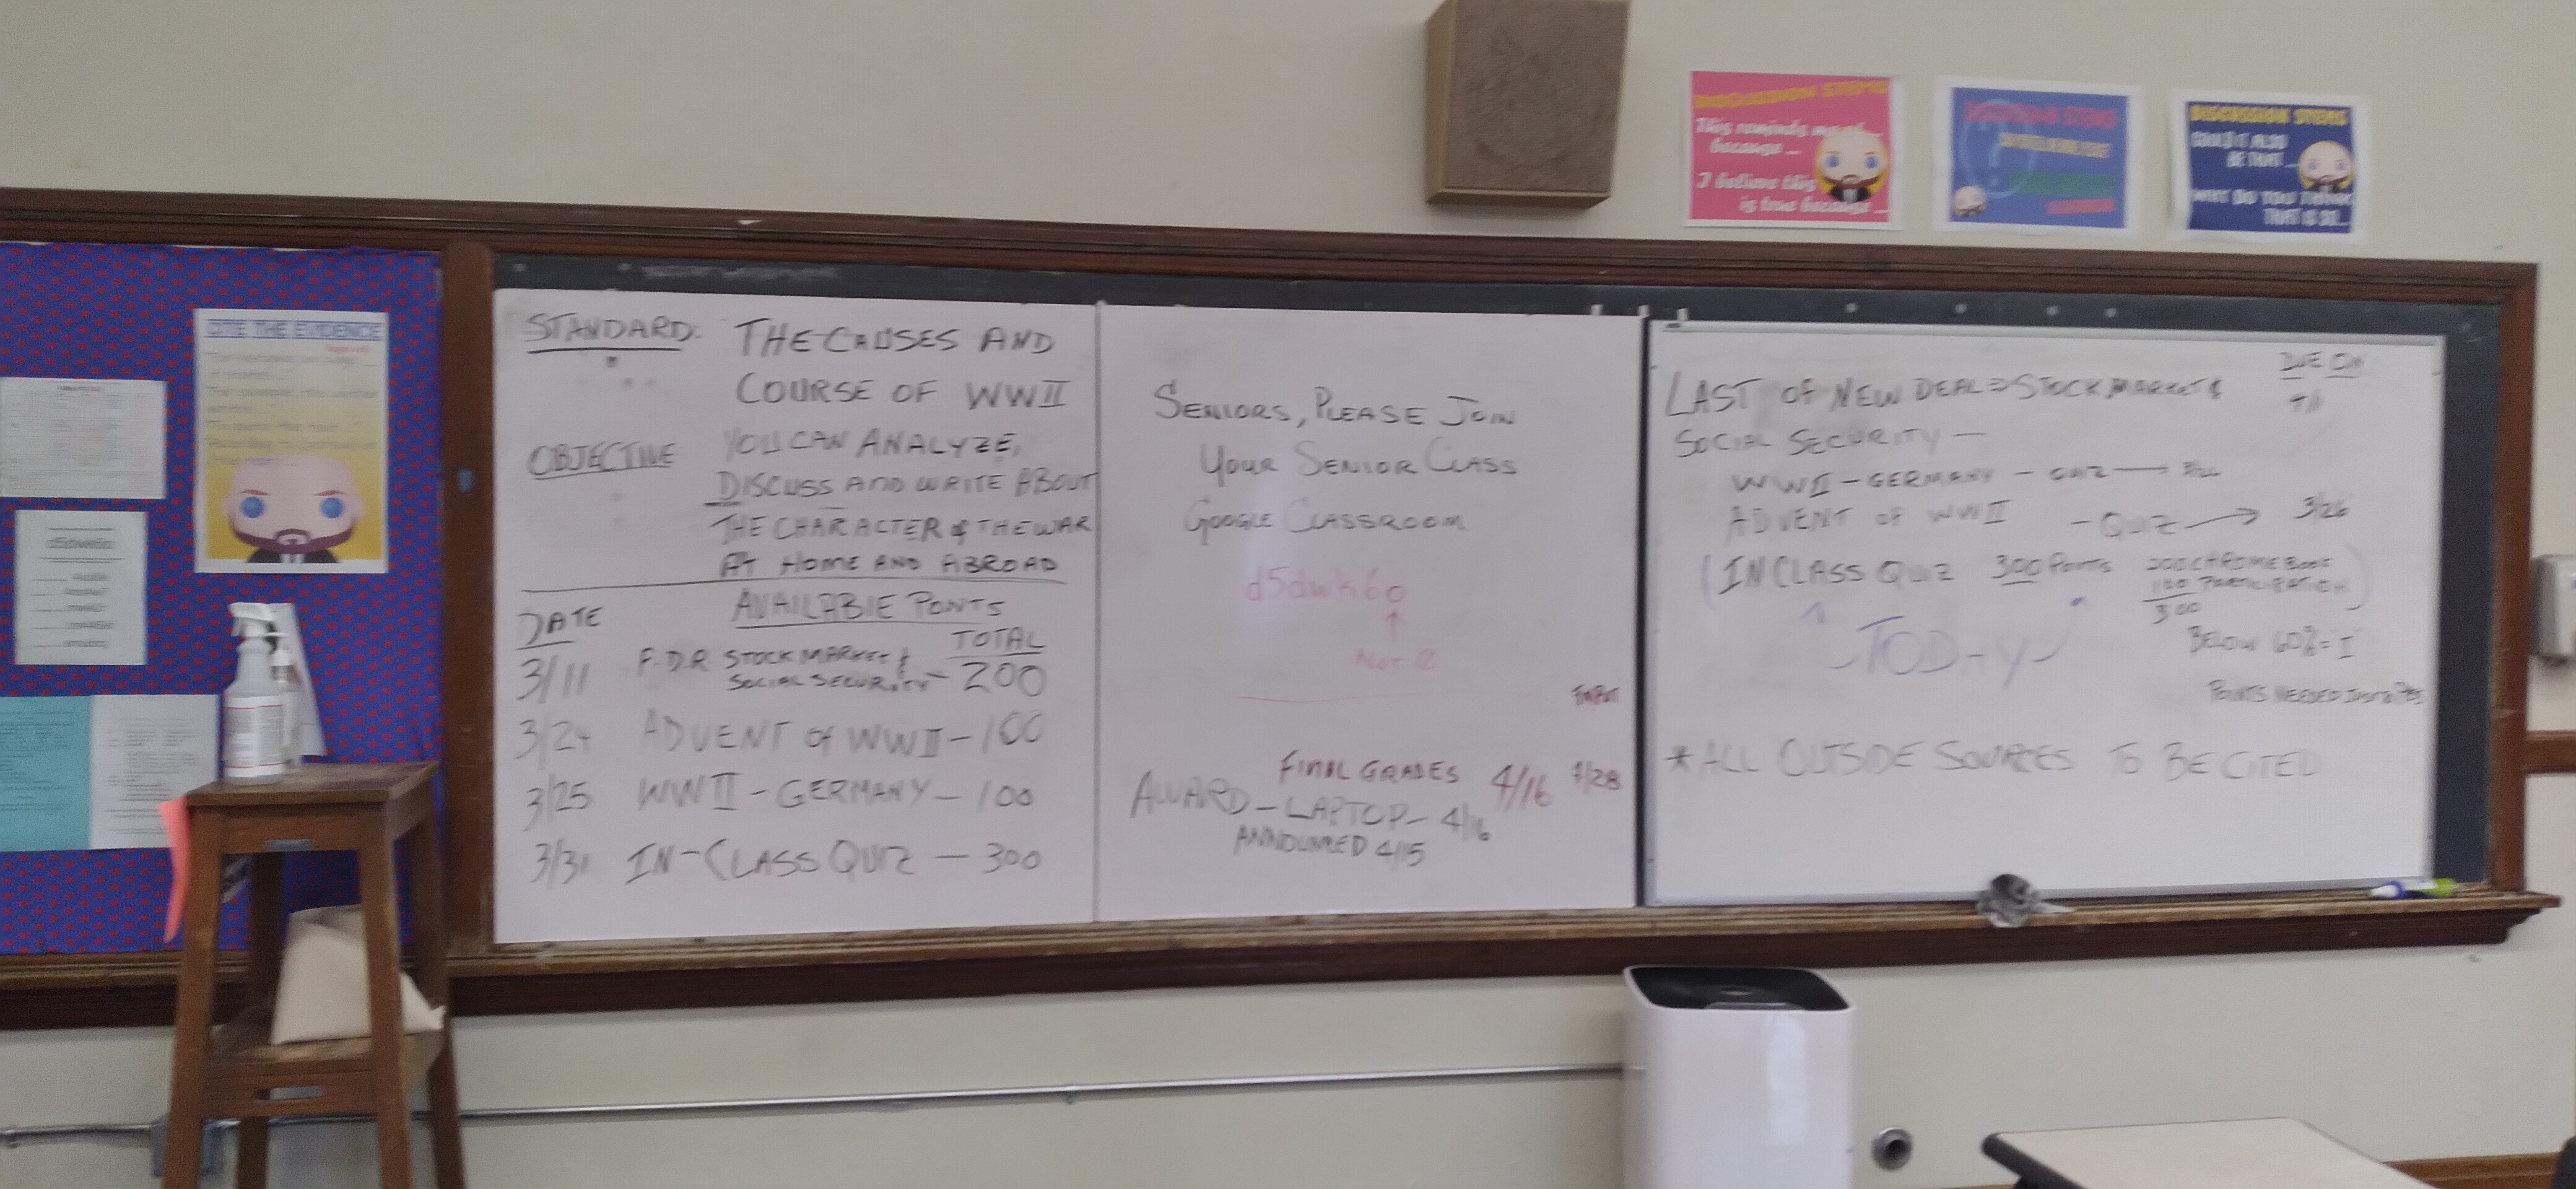 DISCUSSION STEMS
This reminds me
because ...
I believe this
is true because ...
DISCUSSION STEMS
DISCUSSION STEMS
COULD IT ALSO
BE THAT ...
WHY DO YOU THINK
THAT IS SO...
CITE THE EVIDENCE
d5dwk6o
STANDARD: THE CAUSES AND
COURSE OF WWII
OBJECTIVE YOU CAN ANALYZE,
DISCUSS AND WRITE ABOUT
THE CHARACTER of THE WAR
AT HOME AND ABROAD
DATE AVAILABLE PONTS
TOTAL
3/11 F.D.R STOCK MARKET &
SOCIAL SECURITY - 200
3/24 ADVENT of WWII - 100
3/25 WWII - GERMANY - 100
3/31 IN-CLASS QUIZ - 300
SENIORS, PLEASE JOIN
YOUR SENIOR CLASS
GOOGLE CLASSROOM
d5dwk6o
↑
NOT 0
FINAL GRADES 4/16
AWARD - LAPTOP - 4/16
ANNOUNCED 4/15
DUE ON
LAST OF NEW DEAL => STOCK MARKET &
SOCIAL SECURITY -
WWII - GERMANY - QUIZ →
ADVENT of WWII - QUIZ → 3/26
(IN CLASS QUIZ 300 POINTS 200 CHROMEBOOK
100 PARTICIPATION)
300
TODAY
BELOW 60% = I
POINTS NEEDED
*ALL OUTSIDE SOURCES TO BE CITED